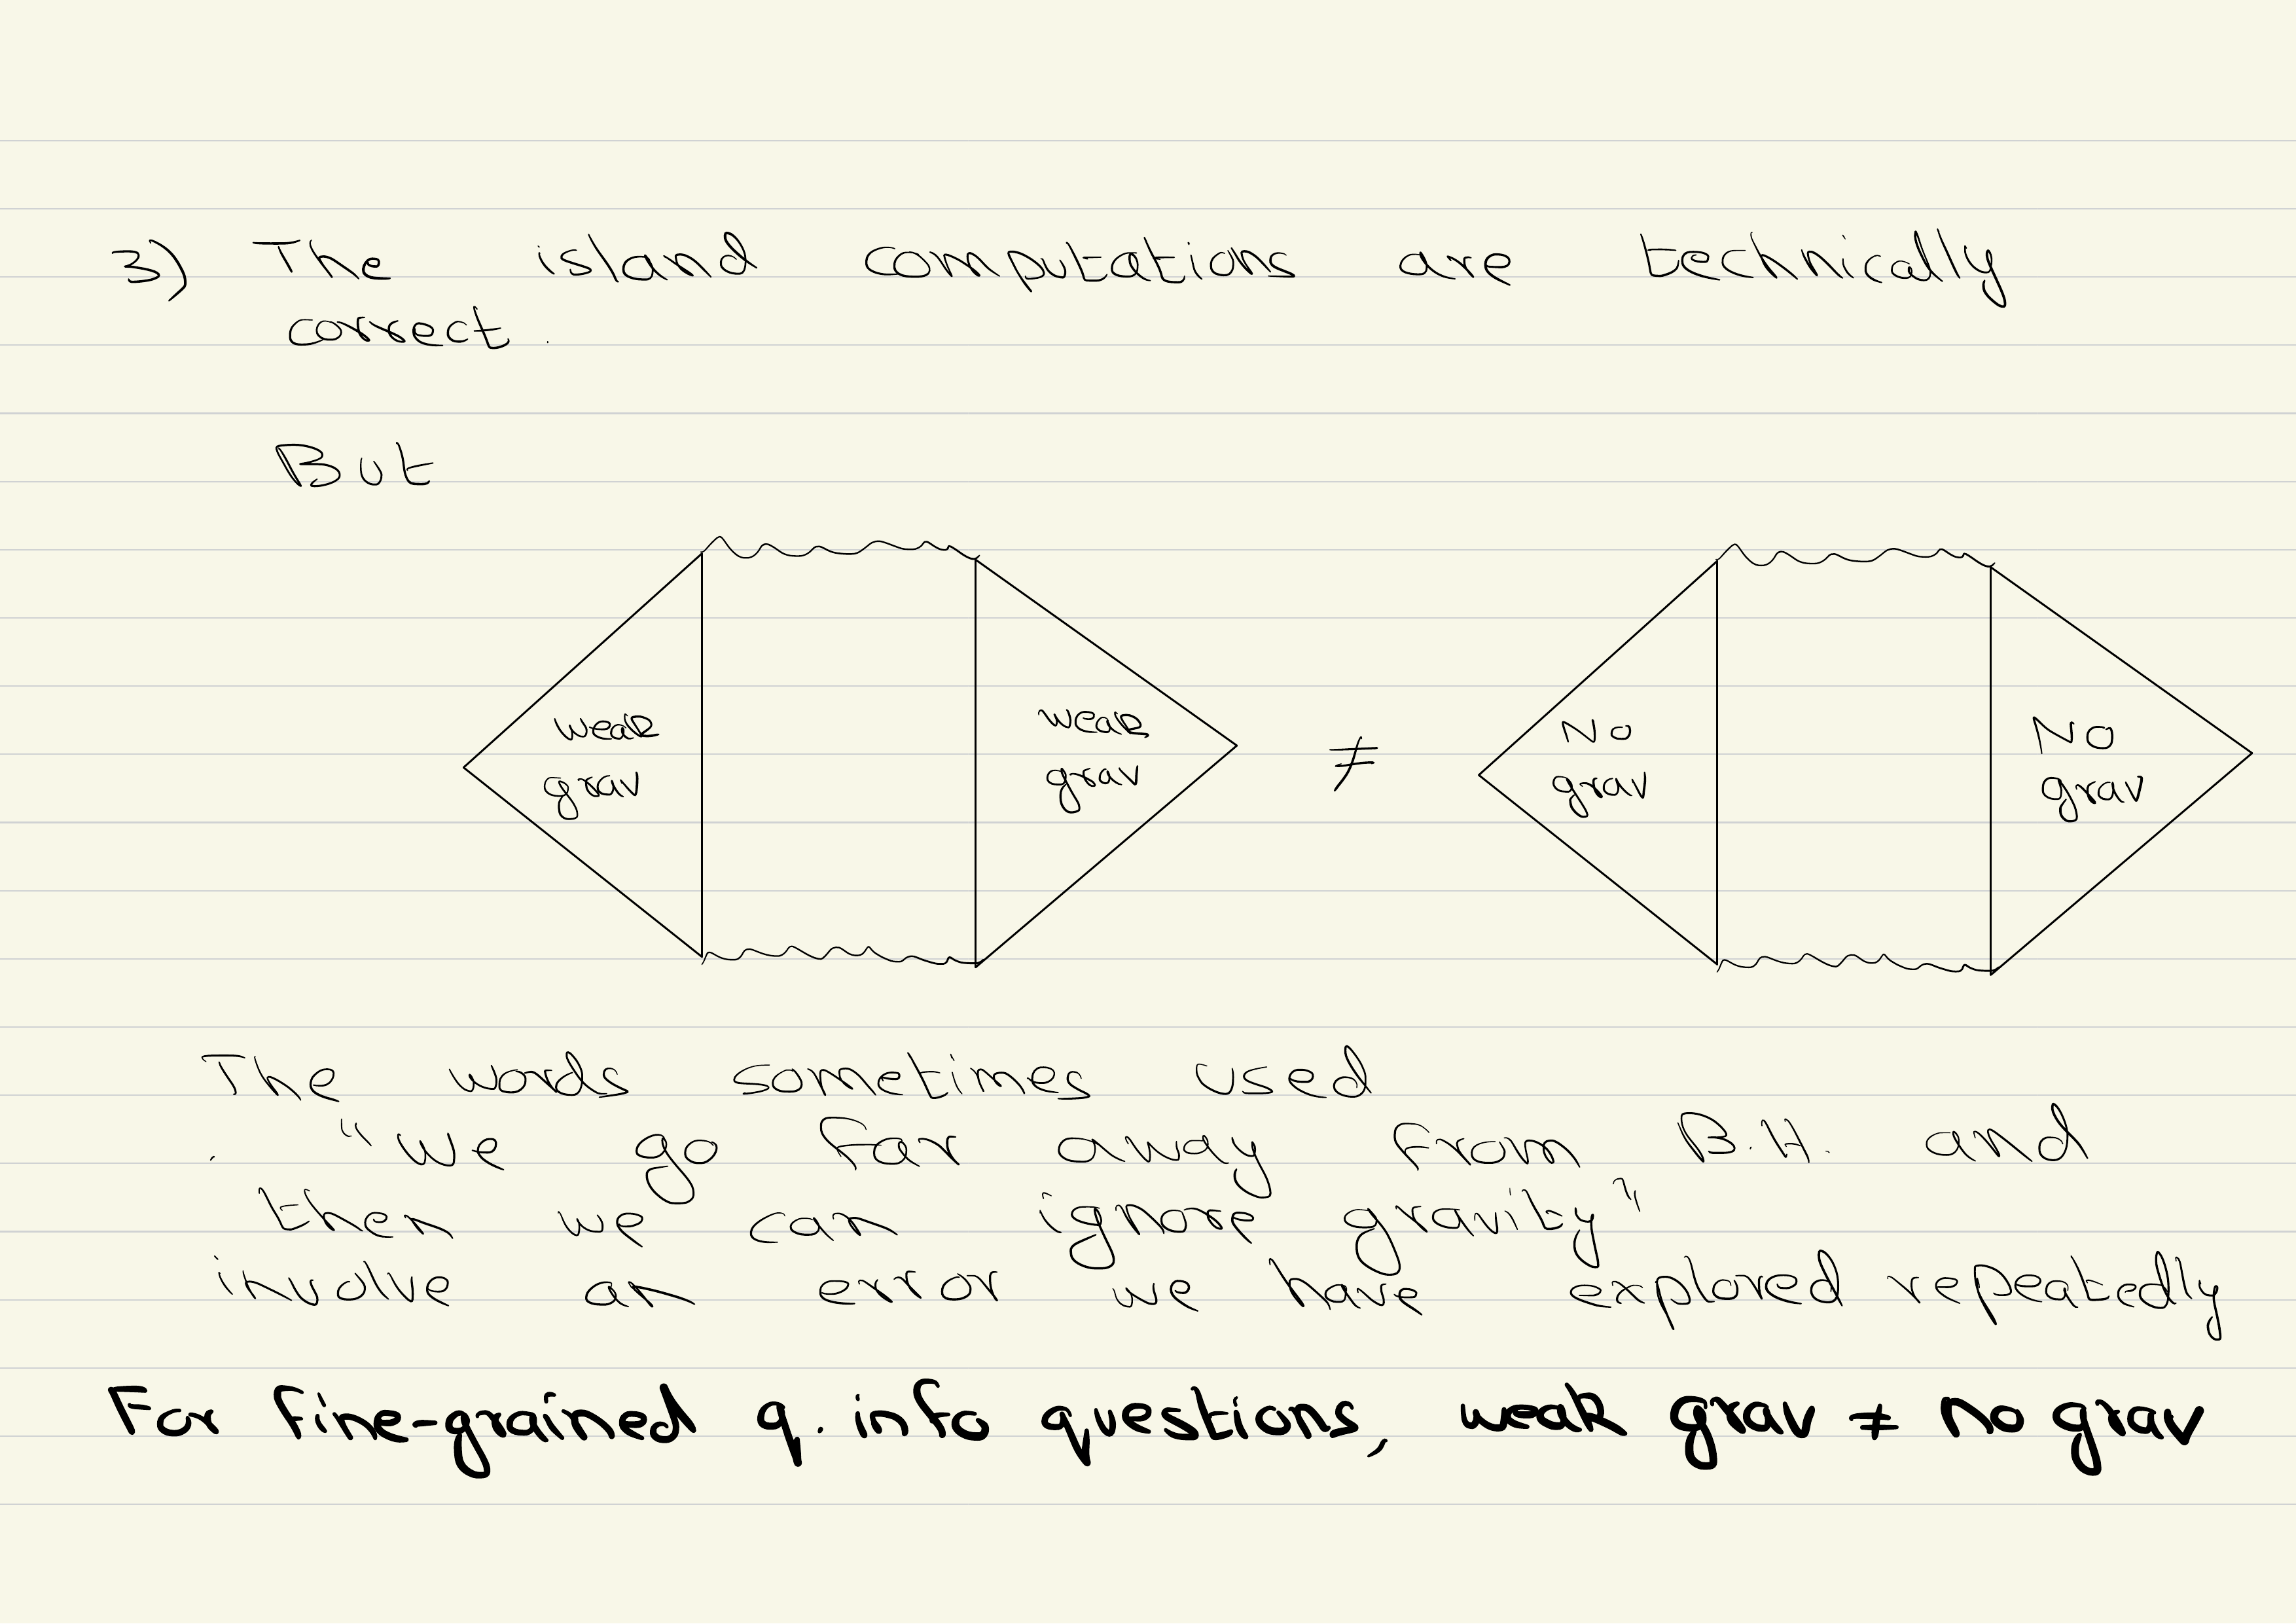 3) The island computations are technically
correct.
But
weak
grav
weak
grav
≠
No
grav
No
grav
The words sometimes used
"We go far away from B.H. and
then we can ignore gravity"
involve an error we have explored repeatedly
For fine-grained q. info questions, weak grav ≠ No grav